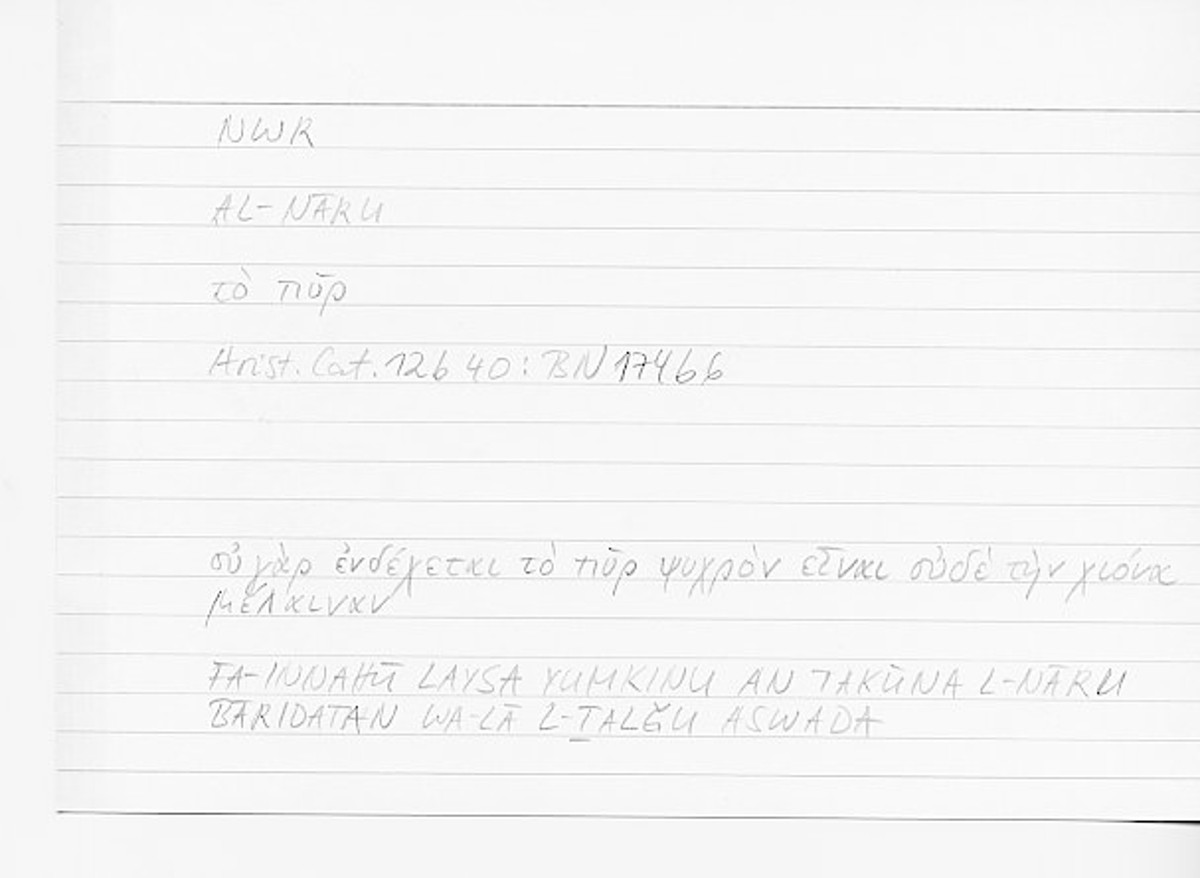 NWR
AL-NĀRU
τὸ πῦρ
Arist. Cat. 12b 40: BN 17466
οὐ γὰρ ἐνδέχεται τὸ πῦρ ψυχρὸν εἶναι οὐδὲ τὴν χιόνα
μέλαιναν
FA-INNAHŪ LAYSA YUMKINU AN TAKŪNA L-NĀRU
BĀRIDATAN WA-LĀ L-ṮALǦU ASWADA